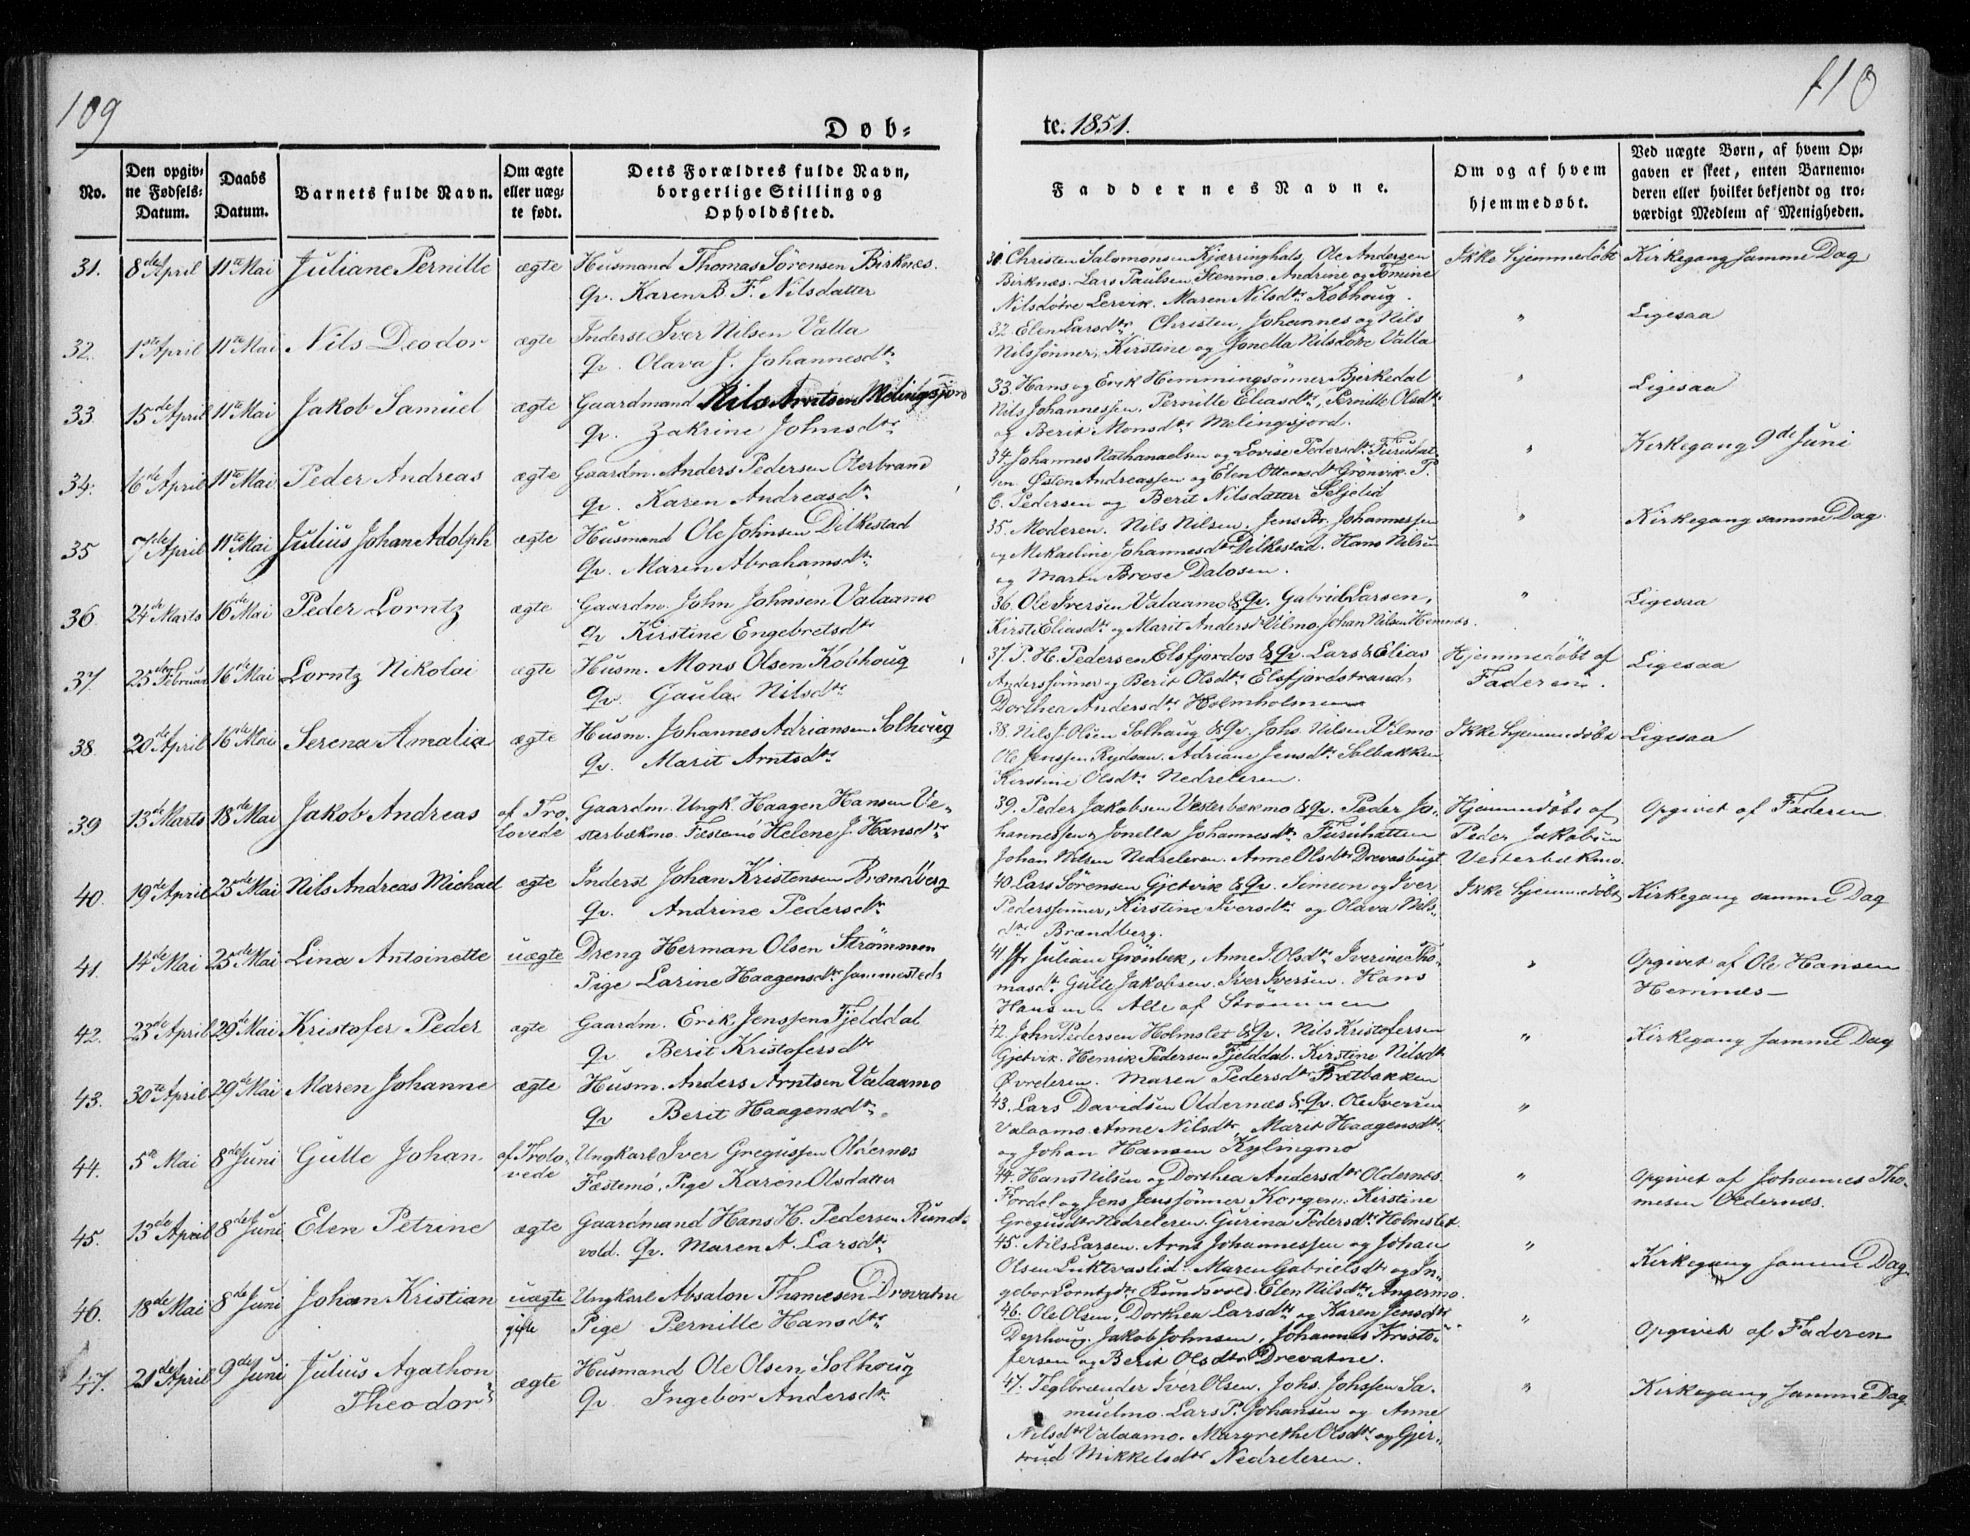 109
110
Døb-
te. 1851.
No.
Den opgiv-
ne Fødsels-
Datum.
Daabs
Datum.
Barnets fulde Navn.
Om ægte
eller uæg-
te født.
Dets Forældres fulde Navn,
borgerlige Stilling og
Opholdssted.
Faddernes Navne.
Om og af hvem
hjemmedøbt.
Ved uægte Børn, af hvem Op-
gaven er skeet, enten Barnemo-
deren eller hvilket bekjendt og tro-
værdigt Medlem af Menigheden.
31. 8de April 11te Mai Juliane Pernille ægte Husmand Thomas Sørensen Birknes.
Qv. Karen B. F. Nilsdatter
31 Christen Salomonsen Kjærringhals, Ole Andersen
Birknæs. Lars Paulsen Stenmo. Andrine og Tomine
Nilsdøtre Lervik. Maren Nilsdtr Kobhoug.
Ikke hjemmedøbt Kirkegang samme Dag
32. 1ste April 11te Mai Nils Deodor ægte Inderst Iver Nilsen Valla
Qv. Olava J. Johannesdtr
32 Elen Larsdtr, Christen, Johannes og Nils
Nilssønner, Kirstine og Jonella Nilsdøtre Valla
" Ligesaa
33. 15de April 11te Mai Jakob Samuel ægte Gaardmand Nils Arntsen Mølingsjord
Qv. Zakrine Johnsdtr
33. Hans og Erik Hemmingsønner Bjerkedal
Nils Johannessen. Pernille Eliasdtr, Pernille Olsdtr
og Berit Monsdtr Melingsjord.
" Ligesaa
34. 16de April 11te Mai Peder Andreas ægte Gaardm. Anders Pedersen Oterbrand
Qv. Karen Andreasdtr
34. Johannes Nathanaelsen og Lovise Pedersdtr Furuhat-
ten. Østen Andreassen og Elen Ottensdtr Grønvik. P.
E. Pedersen og Berit Nilsdatter Seljelid
" Kirkegang 9de Juni
35 7de April 11te Mai Julius Johan Adolph ægte Husmand Ole Johnsen Dilkestad
Qv. Maren Abrahamsdtr
35. Moderen. Nils Nilsen, Jens Br. Johannessen
og Mikaeline Johannesdtr Dilkestad. Hans Nilsen
og Maren Brose Dalosen.
" Kirkegang samme Dag.
36. 24de Marts 16de Mai Peder Lorntz ægte Gaardm. John Johnsen Valaamo
Qv Kirstine Engebretsdtr
36. Ole Iversen Valaamo & Qv. Gabriel Larsen,
Kirsti Eliasdtr og Marit Andersd Vilmo. Johan Nilsen Hemnæs.
" Ligesaa
37. 25de Februar 16de Mai Lorntz Nikolai ægte Husm. Mons Olsen Kobhoug
Qv. Gaula Nilsdtr
37. P. H. Pedersen Elsfjordos & Qv. Lars & Elias
Anderssønner og Berit Olsdtr Elsfjordstrand,
Dorthea Andersdtr Holmholmen
Hjemmedøbt af
Faderen.
Ligesaa
38. 20de April 16de Mai Serena Amalia ægte Husm. Johannes Adriansen Solhoug
Qv. Marit Arntsdtr
38. Nils J. Olsen Solhaug & Qv. Johs. Nilsen Vilmo
Ole Jenssen Rydsaa. Adriane Jensdtr Solbakken
Kirstine Olsdtr Nedreleren.
Ikke hjemmedøbt Ligesaa
39 13de Marts 18de Mai Jakob Andreas af Tro-
lovede
Gaardm. Ungk. Haagen Hansen Ve-
sterbækmo. Fæstemø Helene J. Hansdtr
39. Peder Jakobsen Vesterbækmo & Qv. Peder Jo-
hannessen, Jonella Johannesdtr Furuhatten
Johan Nilsen Nedreleren. Anne Olsdtr Drevasbugt
Hjemmedøbt af
Peder Jakobsen
Vesterbækmo.
Opgivet af Faderen
40. 19de April 25de Mai Nils Andreas Michael ægte Inderst Johan Kristensen Brændberg
Qv. Andrine Pedersdtr
40. Lars Sørensen Gjetvik & Qv. Simeon og Iver
Pederssønner, Kirstine Iversdtr og Olava Nils-
dtr Brændberg.
Ikke hjemmedøbt Kirkegang samme Dag
41. 14de Mai 25de Mai Lina Antoinette uægte Dreng Herman Olsen Strømmen
Pige Larine Haagensdtr sammesteds
41 Fr Juliane Grønbek, Anne J. Olsdtr Iverine Tho-
masdtr Gulle Jakobsen. Iver Iversen. Hans
Hansen. Alle af Strømmen
" Opgivet af Ole Hansen
Hemnæs
42. 23de April 29de Mai Kristofer Peder ægte Gaardm. Erik Jenssen Fjelddal
Qv Berit Kristofersdtr
42 John Pedersen Holmslet & Qv. Nils Kristofersen
Gjetvik. Henrik Pedersen Fjelddal. Kirstine Nilsdtr
Øvreleren. Maren Pedersdtr Fætbakken
" Kirkegang samme Dag
43. 30te April 29de Mai Maren Johanne ægte Husm. Anders Arntsen Valaamo
Qv Berit Haagensdtr.
43. Lars Davidsen Oldernæs & Qv. Ole Iversen
Valaamo. Anne Nilsdtr, Marit Haagensdtr
og Johan Hansen Kylingmo
"
44. 5te Mai 8de Juni Gulle Johan af Trolo-
vede
Ungkarl Iver Gregussen Oldernæs
Fæstemø, Pige Karen Olsdatter
44. Hans Nilsen og Dorthea Andersdtr Oldernæs
Fordel og Jens Jenssønner Korgen. Kirstine
Gregusdtr Nedreleren. Gurina Pedersdtr Holmslet.
" Opgivet af Johannes Tho-
mesen Oldernæs.
45. 13de April 8de Juni Elen Petrine ægte Gaardmand Hans H. Pedersen Rund-
vold. Qv. Maren A. Larsdtr
45. Nils Larsen. Arnt Johannessen og Johan
Olsen Luktvaslid. Maren Gabrielsdtr og In-
gebor Lorntzdtr Rundvold. Elen Nilsdtr Angermo.
" Kirkegang samme Dag.
46. 18de Mai 8de Juni Johan Kristian uægte
Ungkarl Absalon Thomesen Drevatne
Pige Pernille Hansdtr
46. Ole Olsen, Dorthea Larsdtr og Karen Jensdtr
Dyrhoug. Jakob Johnsen, Johannes Kristo-
fersen og Berit Olsdtr Drevatne.
" Opgivet af Faderen
47. 21de April 9de Juni Julius Agathon
Theodor
ægte Husmand Ole Olsen Solhoug
Qv. Ingebor Andersdtr
47. Teglbrænder Iver Olsen. Johs. Johssen Sa-
muelmo. Lars P. Johansen og Anne
Nilsdtr Valaamo. Margrethe Olsdtr og Gjer-
trud Mikkelsdtr Nedreleren.
" Kirkegang samme Dag